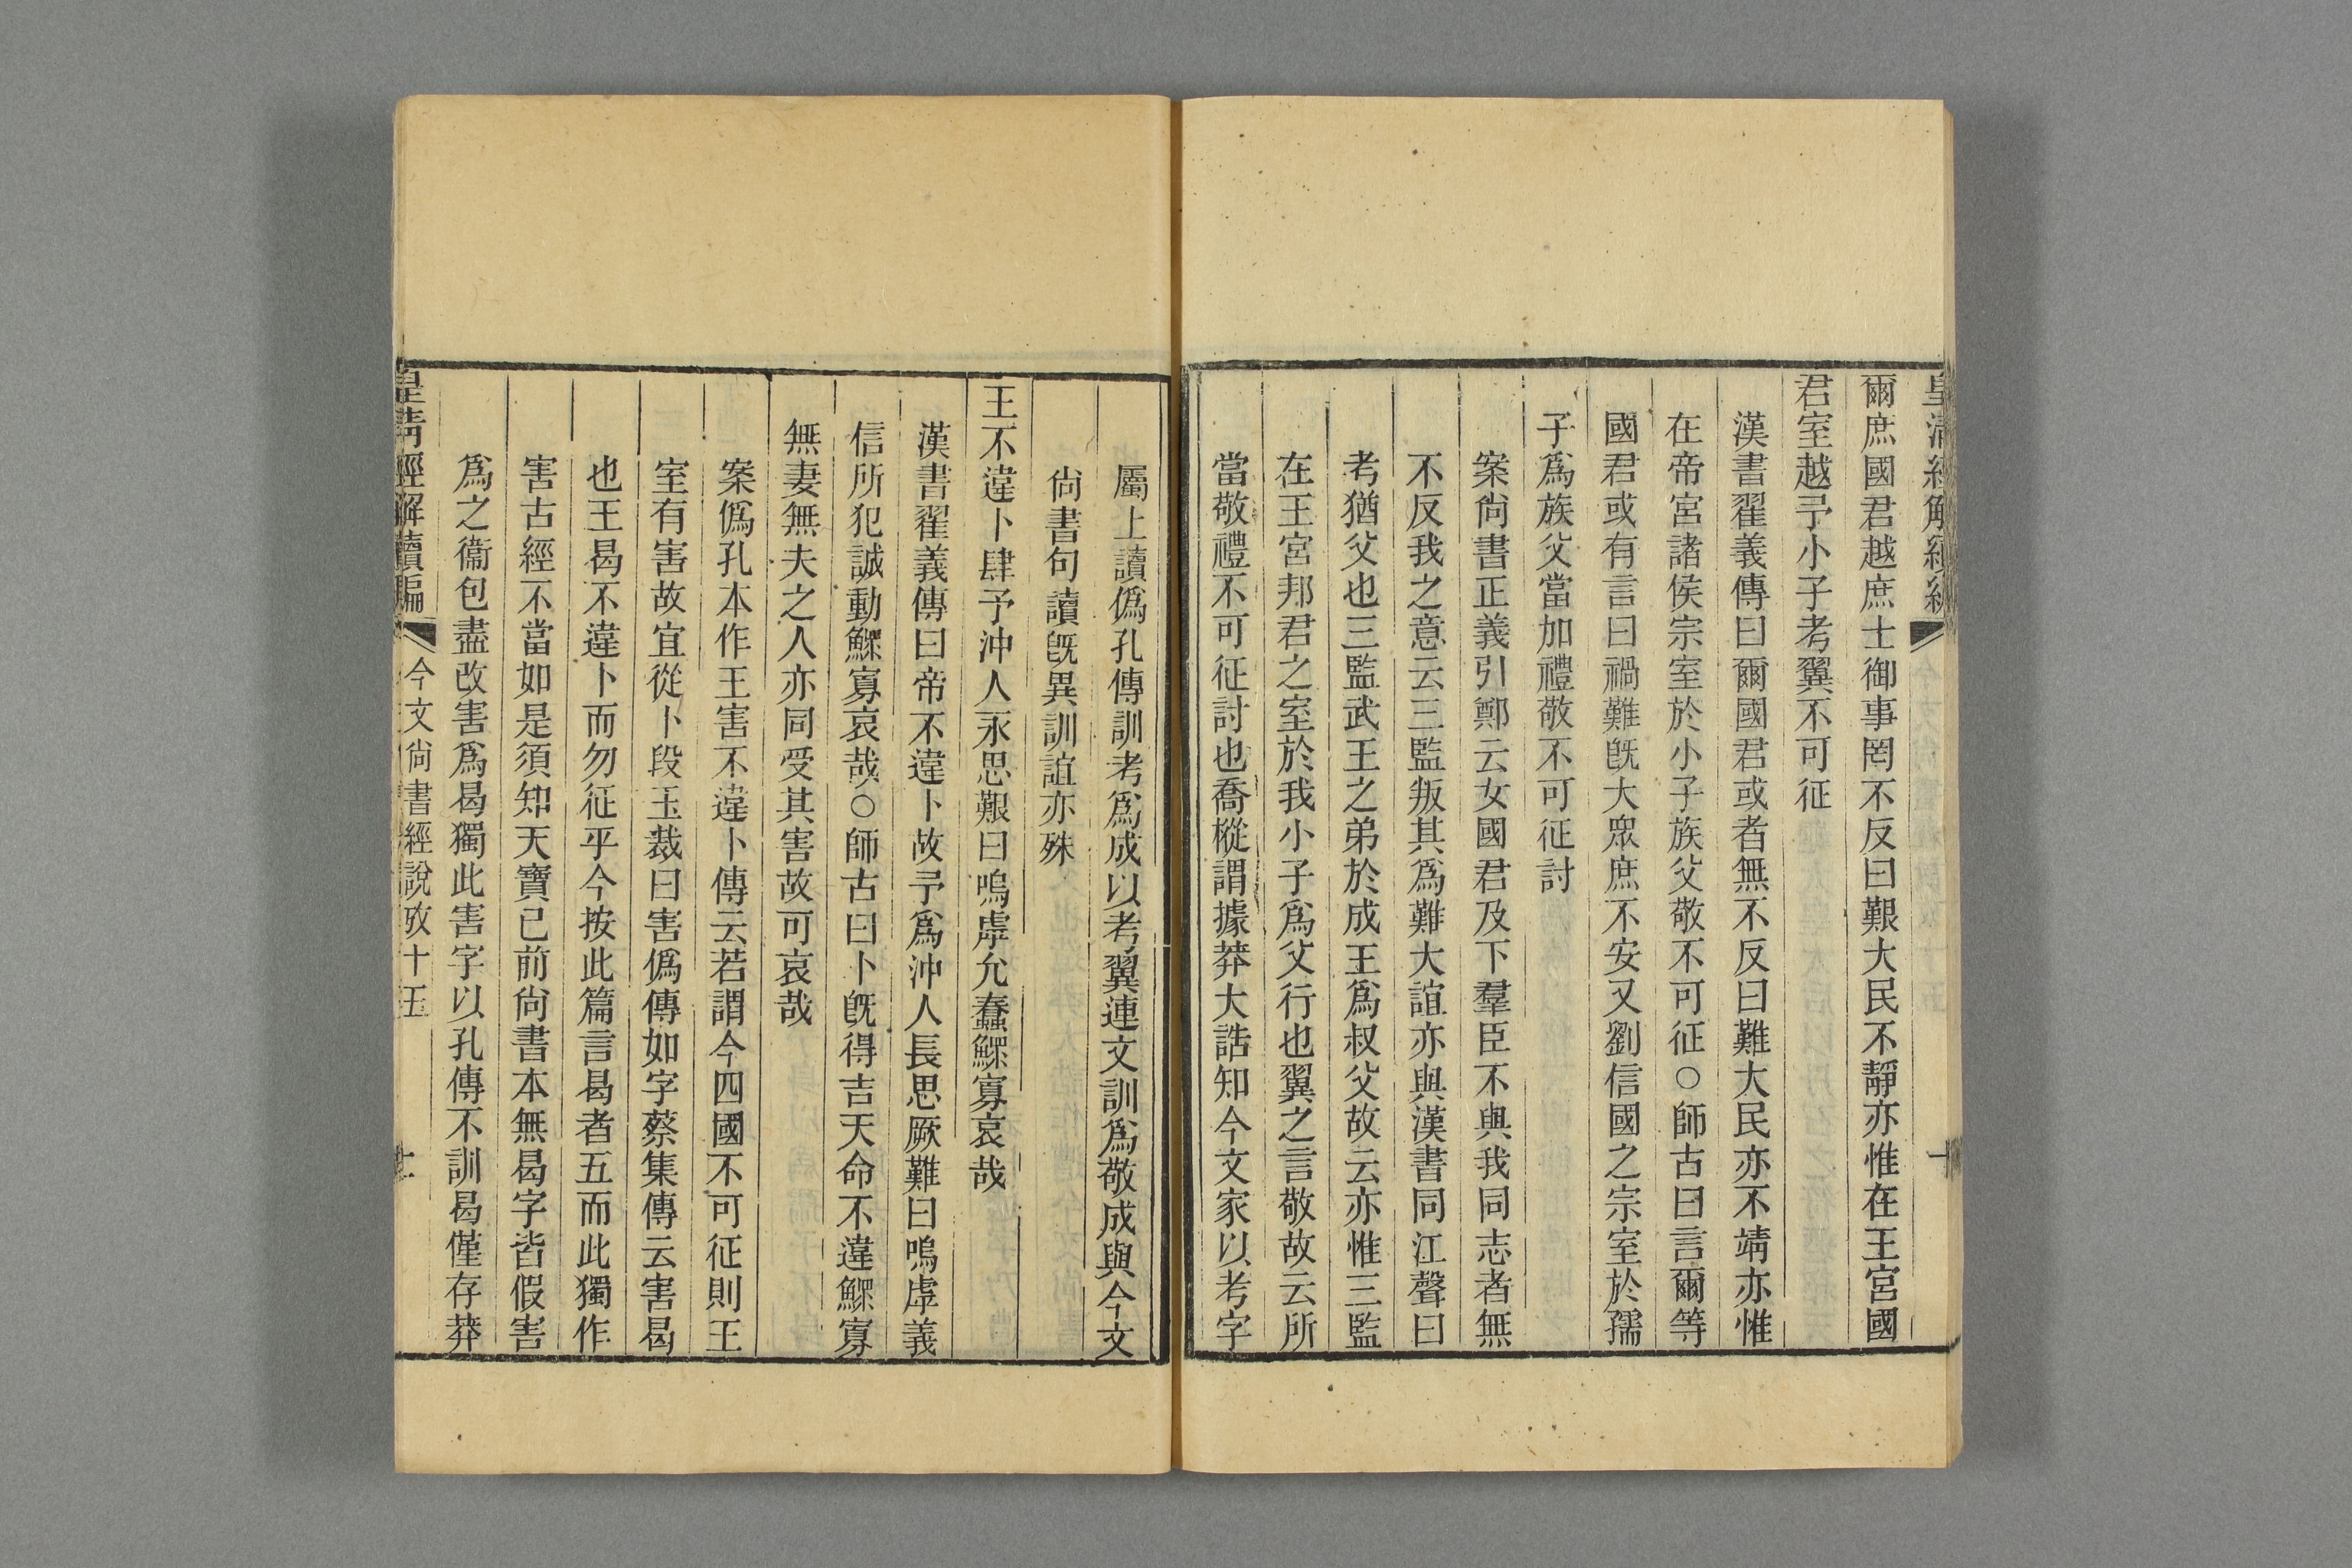 爾庶國君越庶士御事罔不反曰艱大民不靜亦惟在王宮國
君室越予小子考翼不可征
漢書翟義傳曰爾國君或者無不反曰難大民亦不靖亦惟
在帝宮諸侯宗室於小子族父敬不可征○師古曰言爾等
國君或有言曰禍難旣大眾庶不安又劉信國之宗室於孺
子爲族父當加禮敬不可征討
案尙書正義引鄭云女國君及下羣臣不與我同志者無
不反我之意云三監叛其爲難大誼亦與漢書同江聲曰
考猶父也三監武王之弟於成王爲叔父故云亦惟三監
在王宮邦君之室於我小子爲父行也翼之言敬故云所
當敬禮不可征討也喬樅謂據莽大誥知今文家以考字
屬上讀僞孔傳訓考爲成以考翼連文訓爲敬成與今文
尙書句讀旣異訓誼亦殊
王不違卜肆予沖人永思艱曰嗚虖允蠢鰥寡哀哉
漢書翟義傳曰帝不違卜故予爲沖人長思厥難曰嗚虖義
信所犯誠動鰥寡哀哉○師古曰卜旣得吉天命不違鰥寡
無妻無夫之人亦同受其害故可哀哉
案僞孔本作王害不違卜傳云若謂今四國不可征則王
室有害故宜從卜段玉裁曰害僞傳如字蔡集傳云害曷
也王曷不違卜而勿征乎今按此篇言曷者五而此獨作
害古經不當如是須知天寶已前尙書本無曷字皆假害
爲之衞包盡改害爲曷獨此害字以孔傳不訓曷僅存莽
皇淸經解續編
今文尙書經說攷十五